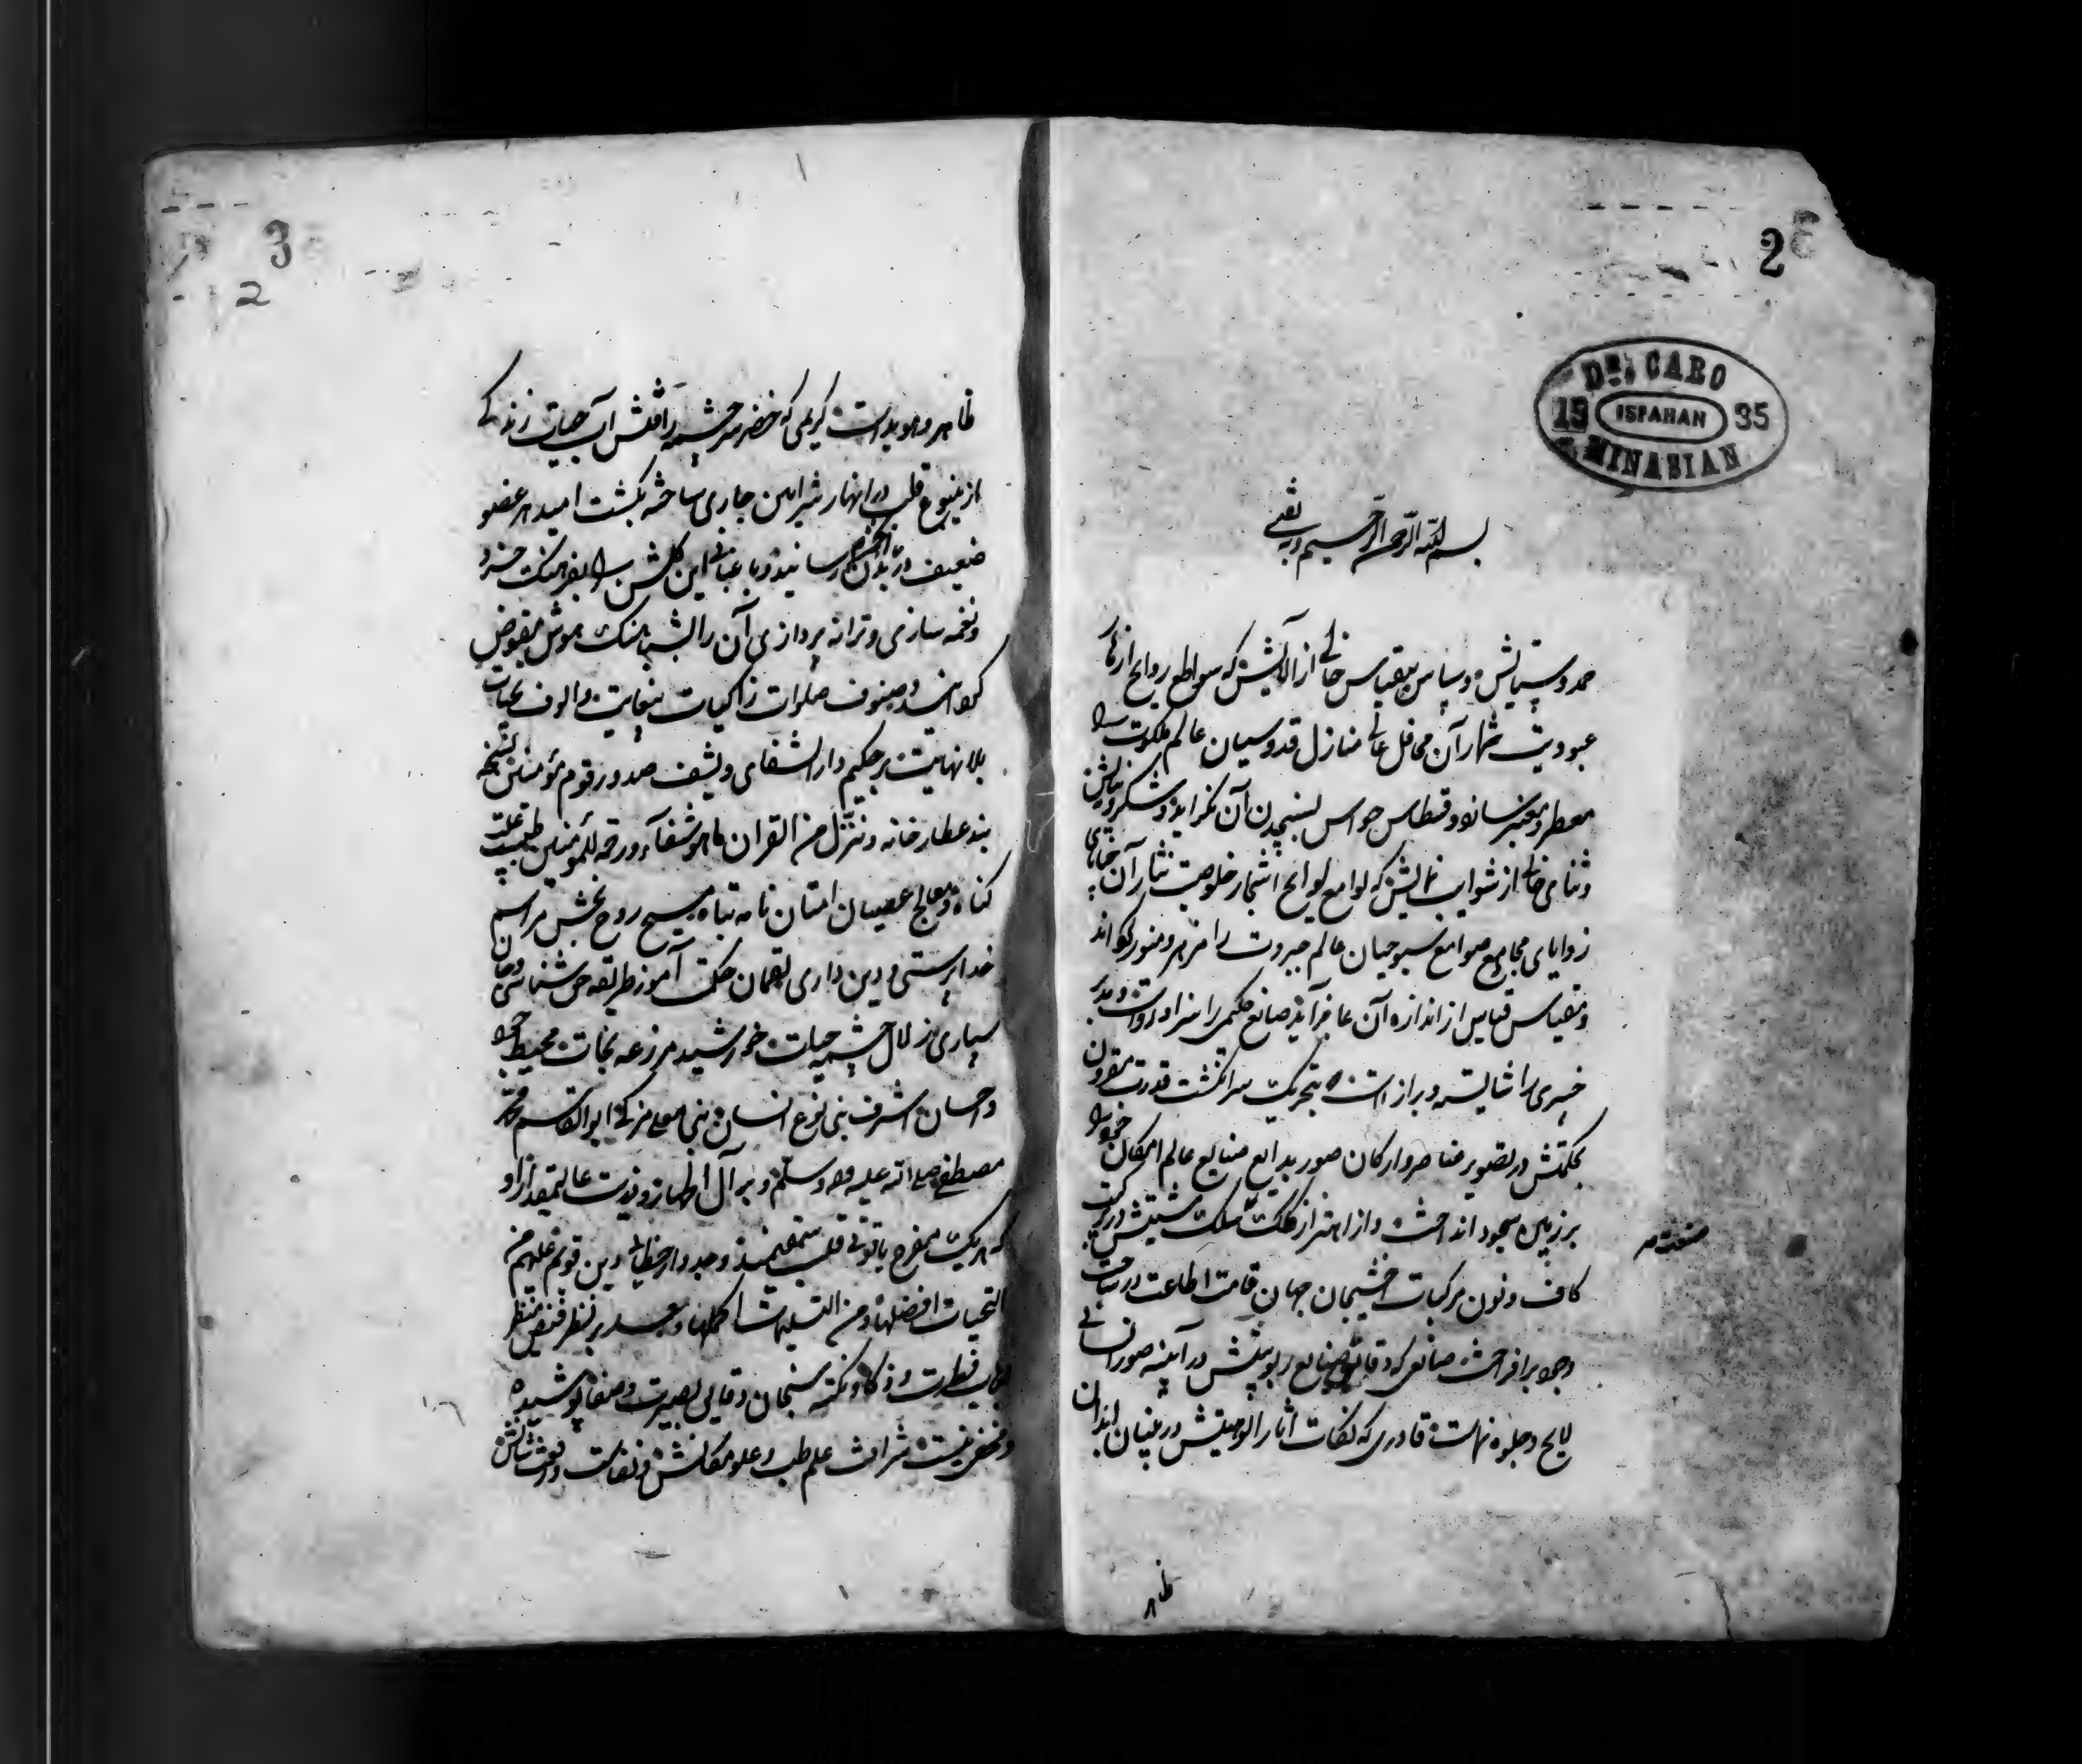 2
Dr. CARO
19 ISFAHAN 35
MINASIAN
بسم الله الرحمن الرحیم وبه ثقتی
حمد و ستایش و سپاس بیقیاس خالی از آلایش که سواطع روایح ازهار
عبودیت شمار آن محافل عالی منازل قدوسیان عالم ملکوت را
معطر و معنبر ساند و قسطاس حواس لسنجیدن آن نکراید و شکر و نیایش
و ثنای خالی از شوایب نمایش که لوامع لوایح اشجار خلوصیت نثار آن
زوایای مجامع صوامع سبوحیان عالم جبروت را مزهر و منور کرداند
و مقیاس قیاس از اندازه آن عاجز آید صانع حکیمی را سزاوار است و
خبیری را شایسته و برازاست که بتحریک سرانکشت قدرت مقرون
بحکمتش در تصویر عناصر و ارکان صور بدایع صنایع عالم امکان
بر زمین سجود انداخته و از اهتزاز کلک مشیتش در
صنعت
کاف و نون مرکبات جهان قامت اطاعت در ساحت
وجود برافراخته صانعی که دقایق صنایع ربوبیتش در آیینه صور انسانی
لایح و جلوه نماست قادری که نفحات اثار الوهیتش در بنیان ابدان
ظاهر
3
2
ظاهر و هویداست کریمی که خضر سرچشمه رافتش آب حیات زندکی
از ینبوع قلب در انهار شرایین جاری ساخته بکشت امید هر عضو
ضعیف در بدن رسانید و باغبانی این کلشن را بفرهنک خرد
و نغمه سازی و ترانه پردازی آن را بشباهنک هوش مفوض
کردانید و صنوف صلوات زاکیات بیغایت و الوف تحیات
بلا نهایت بر حکیم دار الشفای و یشف صدور قوم مؤمنین نسخه
بند عطارخانه و ننزل من القران ما هو شفاء و رحمة للمؤمنین طبیب علت
کناه و معالج عصیان امتان نامه تباه مسیح روح بخش مراسم
خداپرستی و دین داری لقمان حکمت آموز طریقه حق شناسی و جان
سپاری زلال چشمه حیات خورشید مزرعه نجات محیط
و احسان اشرف بنی نوع انسان نبی ابو القاسم محمد
مصطفی صلی الله علیه و اله و سلم و بر آل اطهار و ذریت
که هر یک مفرح یاقوتی قلب و جدوار خطایی دین قویم علیهم من
التحیات افضلها و من التسلیمات اکملها و بعد بر نظر
فطرت و ذکا و نکته سنجان دقایق بصیرت و صفا پوشیده
و مخفی نیست شرافت علم طب و علو مکانش و نفاست و رفعت شانش